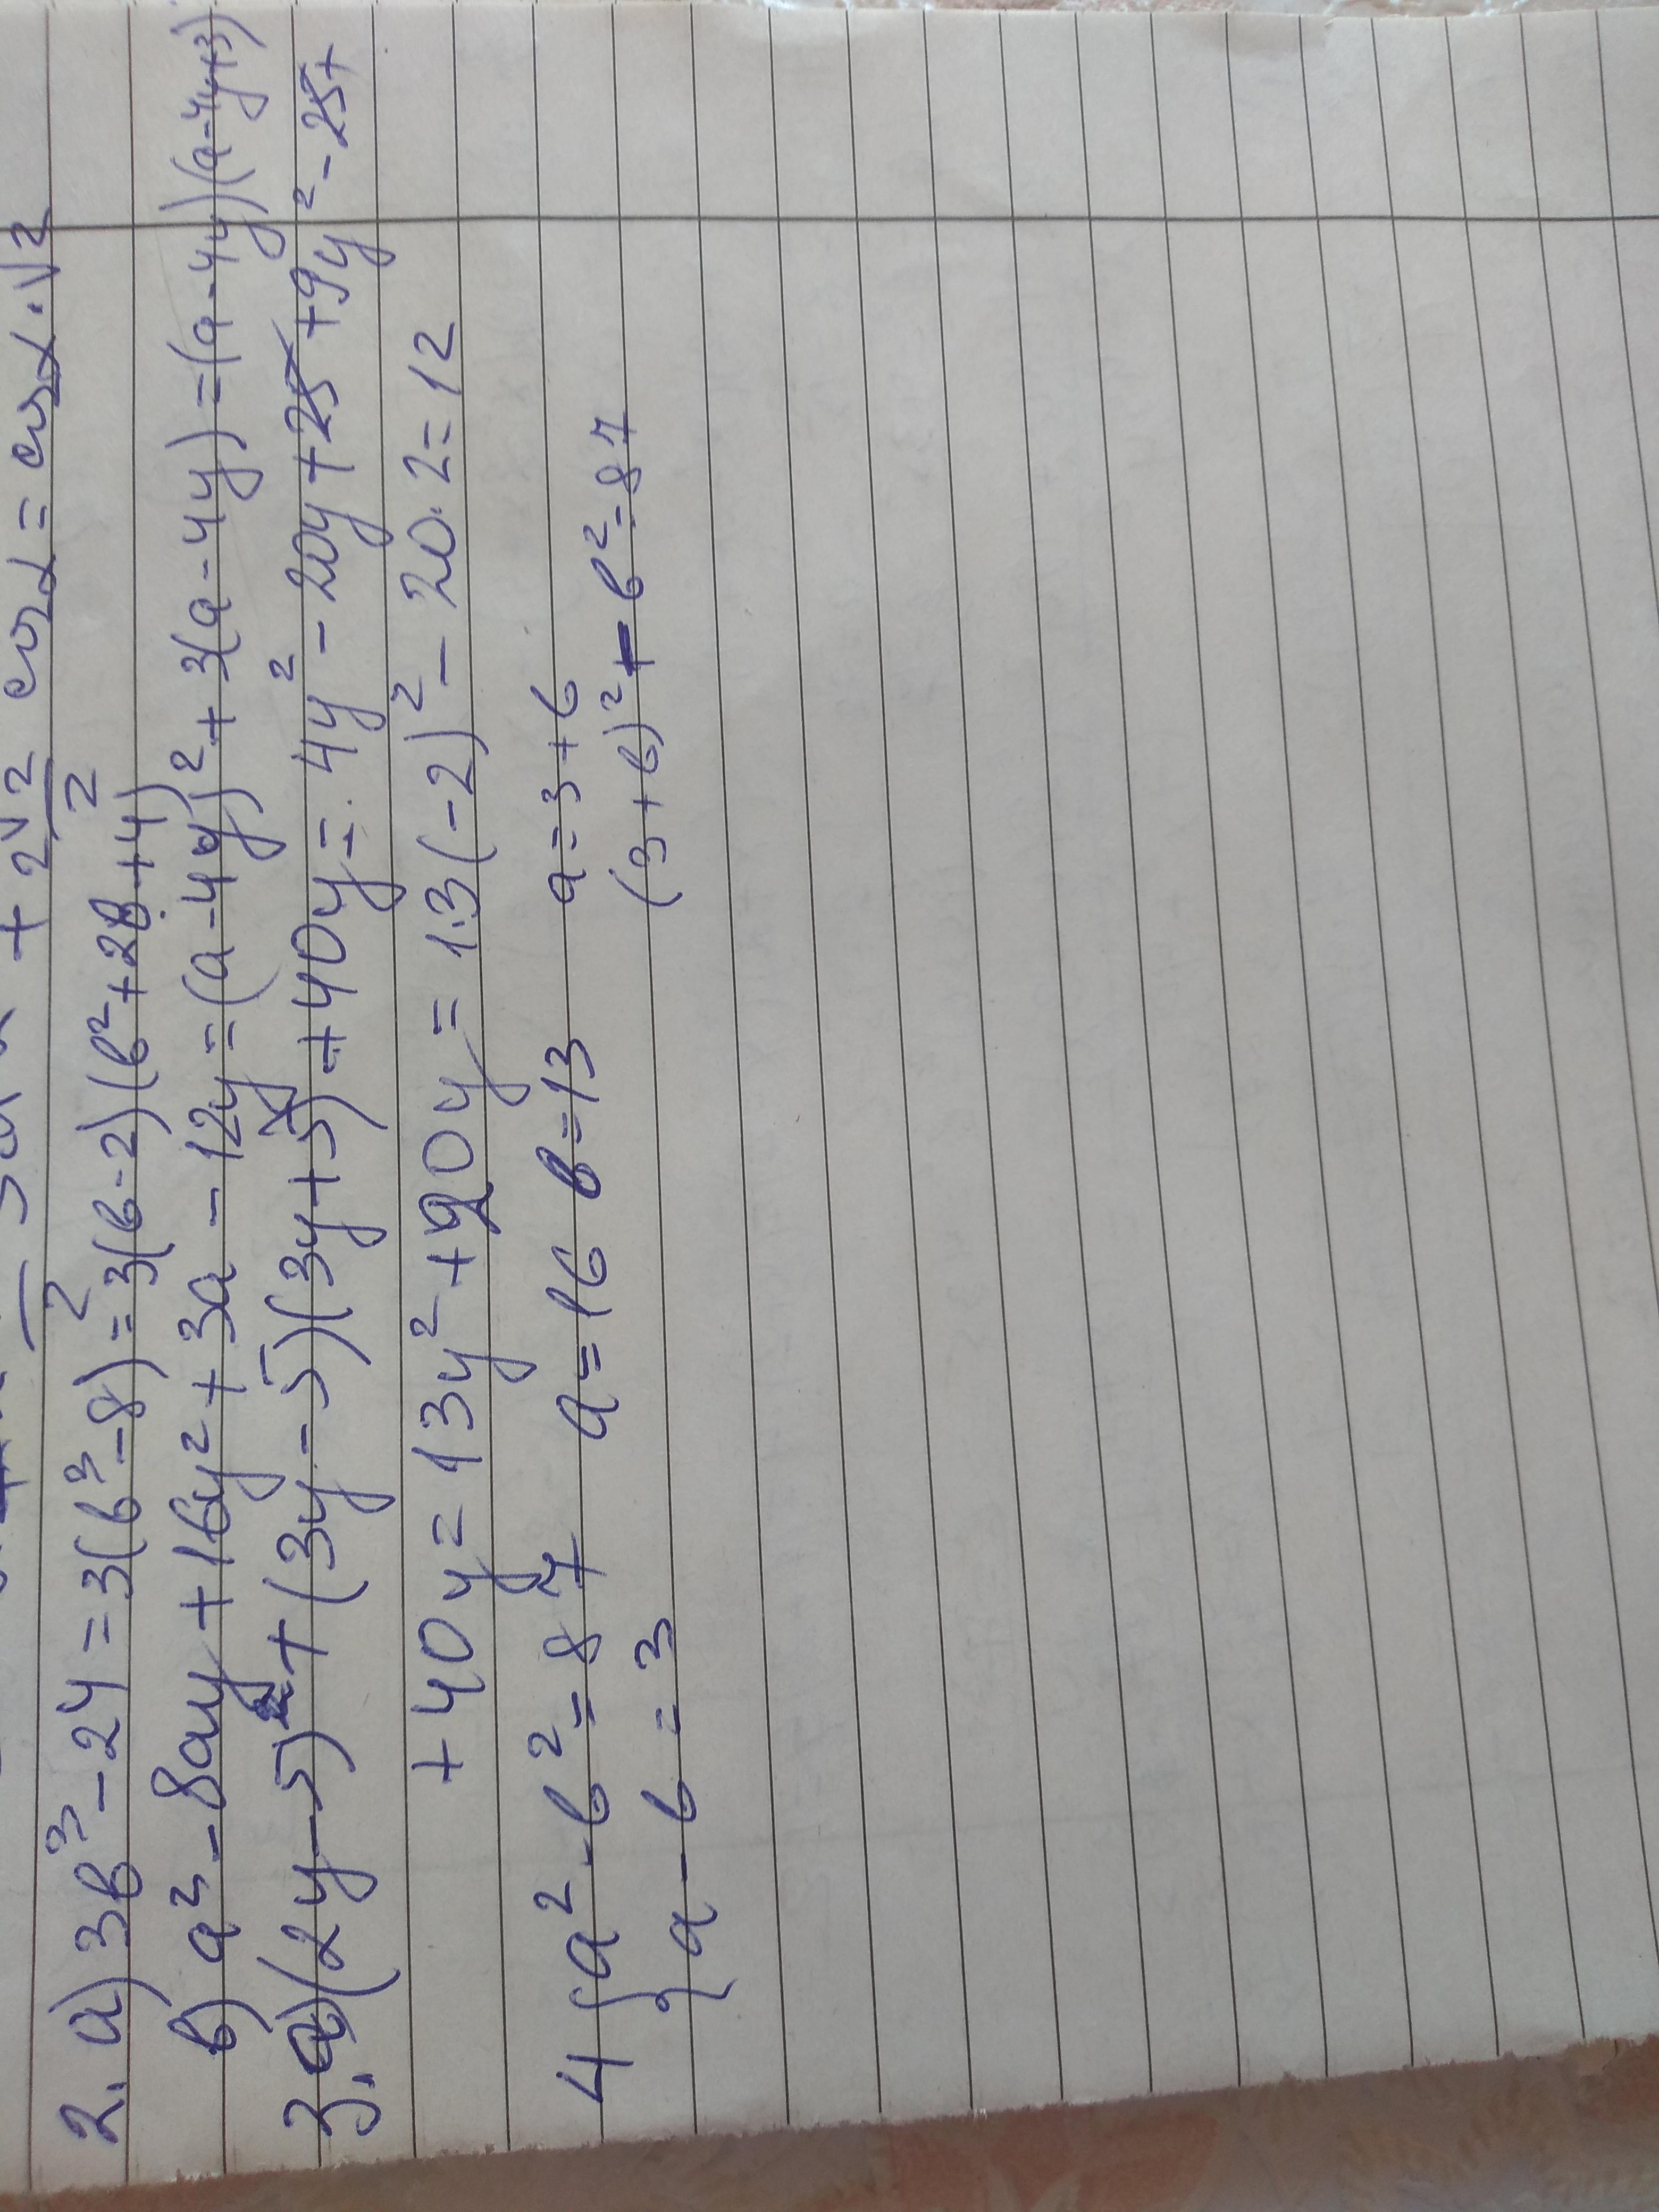 + 2√2/2 cos α = cos α · √2
2. a) 3b³ - 24 = 3(b³ - 8) = 3(b - 2)(b² + 2b + 4)
b) a² - 8ay + 16y² + 3a - 12y = (a - 4y)² + 3(a - 4y) = (a - 4y)(a - 4y + 3)
3. a) (2y - 5)² + (3y - 5)(3y + 5) + 40y = 4y² - 20y + 25 + 9y² - 25 +
+ 40y = 13y² + 20y = 13(-2)² - 20 · 2 = 12
4 { a² - b² = 87 a = 16 b = 13 a = 3 + b
a - b = 3 (3 + b)² - b² = 87